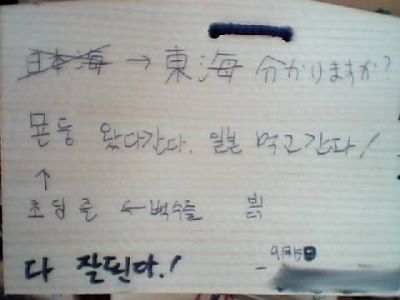 日本海 → 東海 分かりますか?
묜둥 왔다간다. 일본 먹고 간다!
↑
초딩 존 ← 백수들 붉
다 잘된다!
- 9月5日